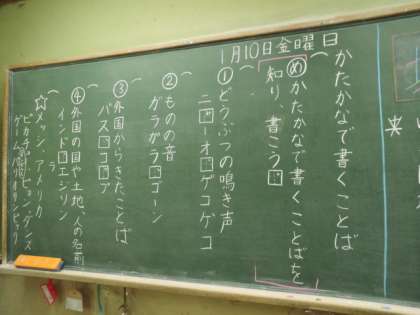 1月10日金曜日
かたかなで書くことば
めかたかなで書くことばを
知り、書こう。
①どうぶつの鳴き声
ニャーオ。ゲコゲコ
②ものの音
ガラガラ。ゴーン
③外国からきたことば
バス。ココア
④外国の国や土地、人の名前
インド。エジソン
☆メッシ、アメリカ